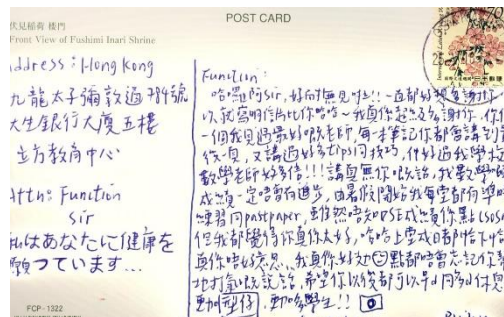 伏見稲荷 楼門
Front View of Fushimi Inari Shrine
POST CARD
70
address : Hong Kong
九龍太子彌敦道784號
大生銀行大廈五樓
立方教育中心
Attn: Function
sir
私はあなたに健康を
願つています...
Function:
哈囉阿sir, 好耐無見啦!! 一直都好想多謝你
以就寫明信片比你啦~ 我真係超級多謝你, 你係
一個我見過最好嘅老師, 每一本筆記你都會講到
後一頁, 又講過好多tips同技巧
數學老師好多倍!!! 講真無你嘅話, 我數學嘅
成績一定唔會有進步, 由暑假開始我每堂都有準時
練習同pastpaper, 雖然唔知DSE成績係點 (sosad
但我都覺得你真係太好, 哈哈上堂成日都恰下恰下
真係唔好意思, 我真係好攰☹ 點都唔會忘記你
地打氣嘅說話, 希望你以後都可以早啲同多啲休息
動啲學生!!
FCP-1322